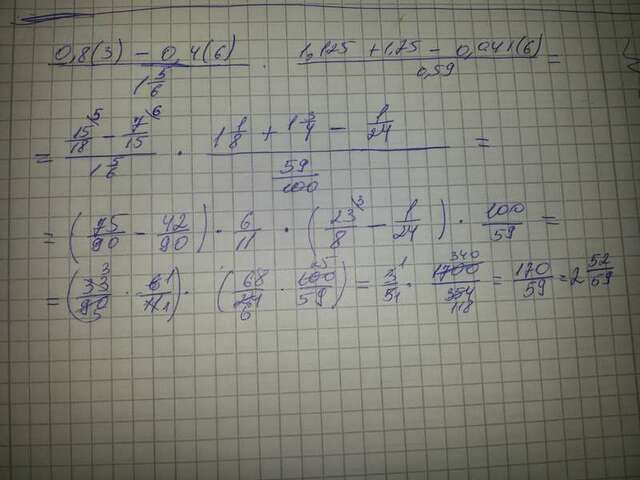 (0,8(3) − 0,4(6))/(1 5/6) · (1,125 + 1,75 − 0,041(6))/(0,59) =
= (15/18 ⁵ − 7/15 ⁶)/(1 5/6) · (1 1/8 + 1 3/4 − 1/24)/(59/100) =
= (75/90 − 42/90) · 6/11 · (23/8 ³ − 1/24) · 100/59 =
= (33 3/90 5 · 6 1/11 1) · (68/24 6 · 100 25/59) = 3/5 1 1 · 1700 340/354 118 = 170/59 = 2 52/59